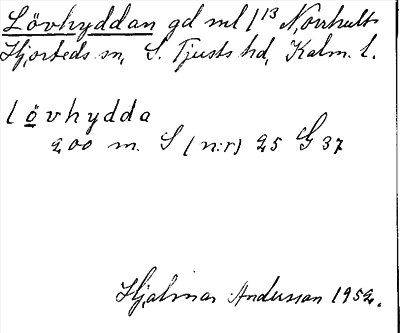 Lövhyddan gd ml 1¹³ Norrhults
Hjorteds sn, S. Tjusts hd, Kalm. l.
lövhydda
200 m. S (n:r) 25 G 37
Hjalmar Andersson 1952.